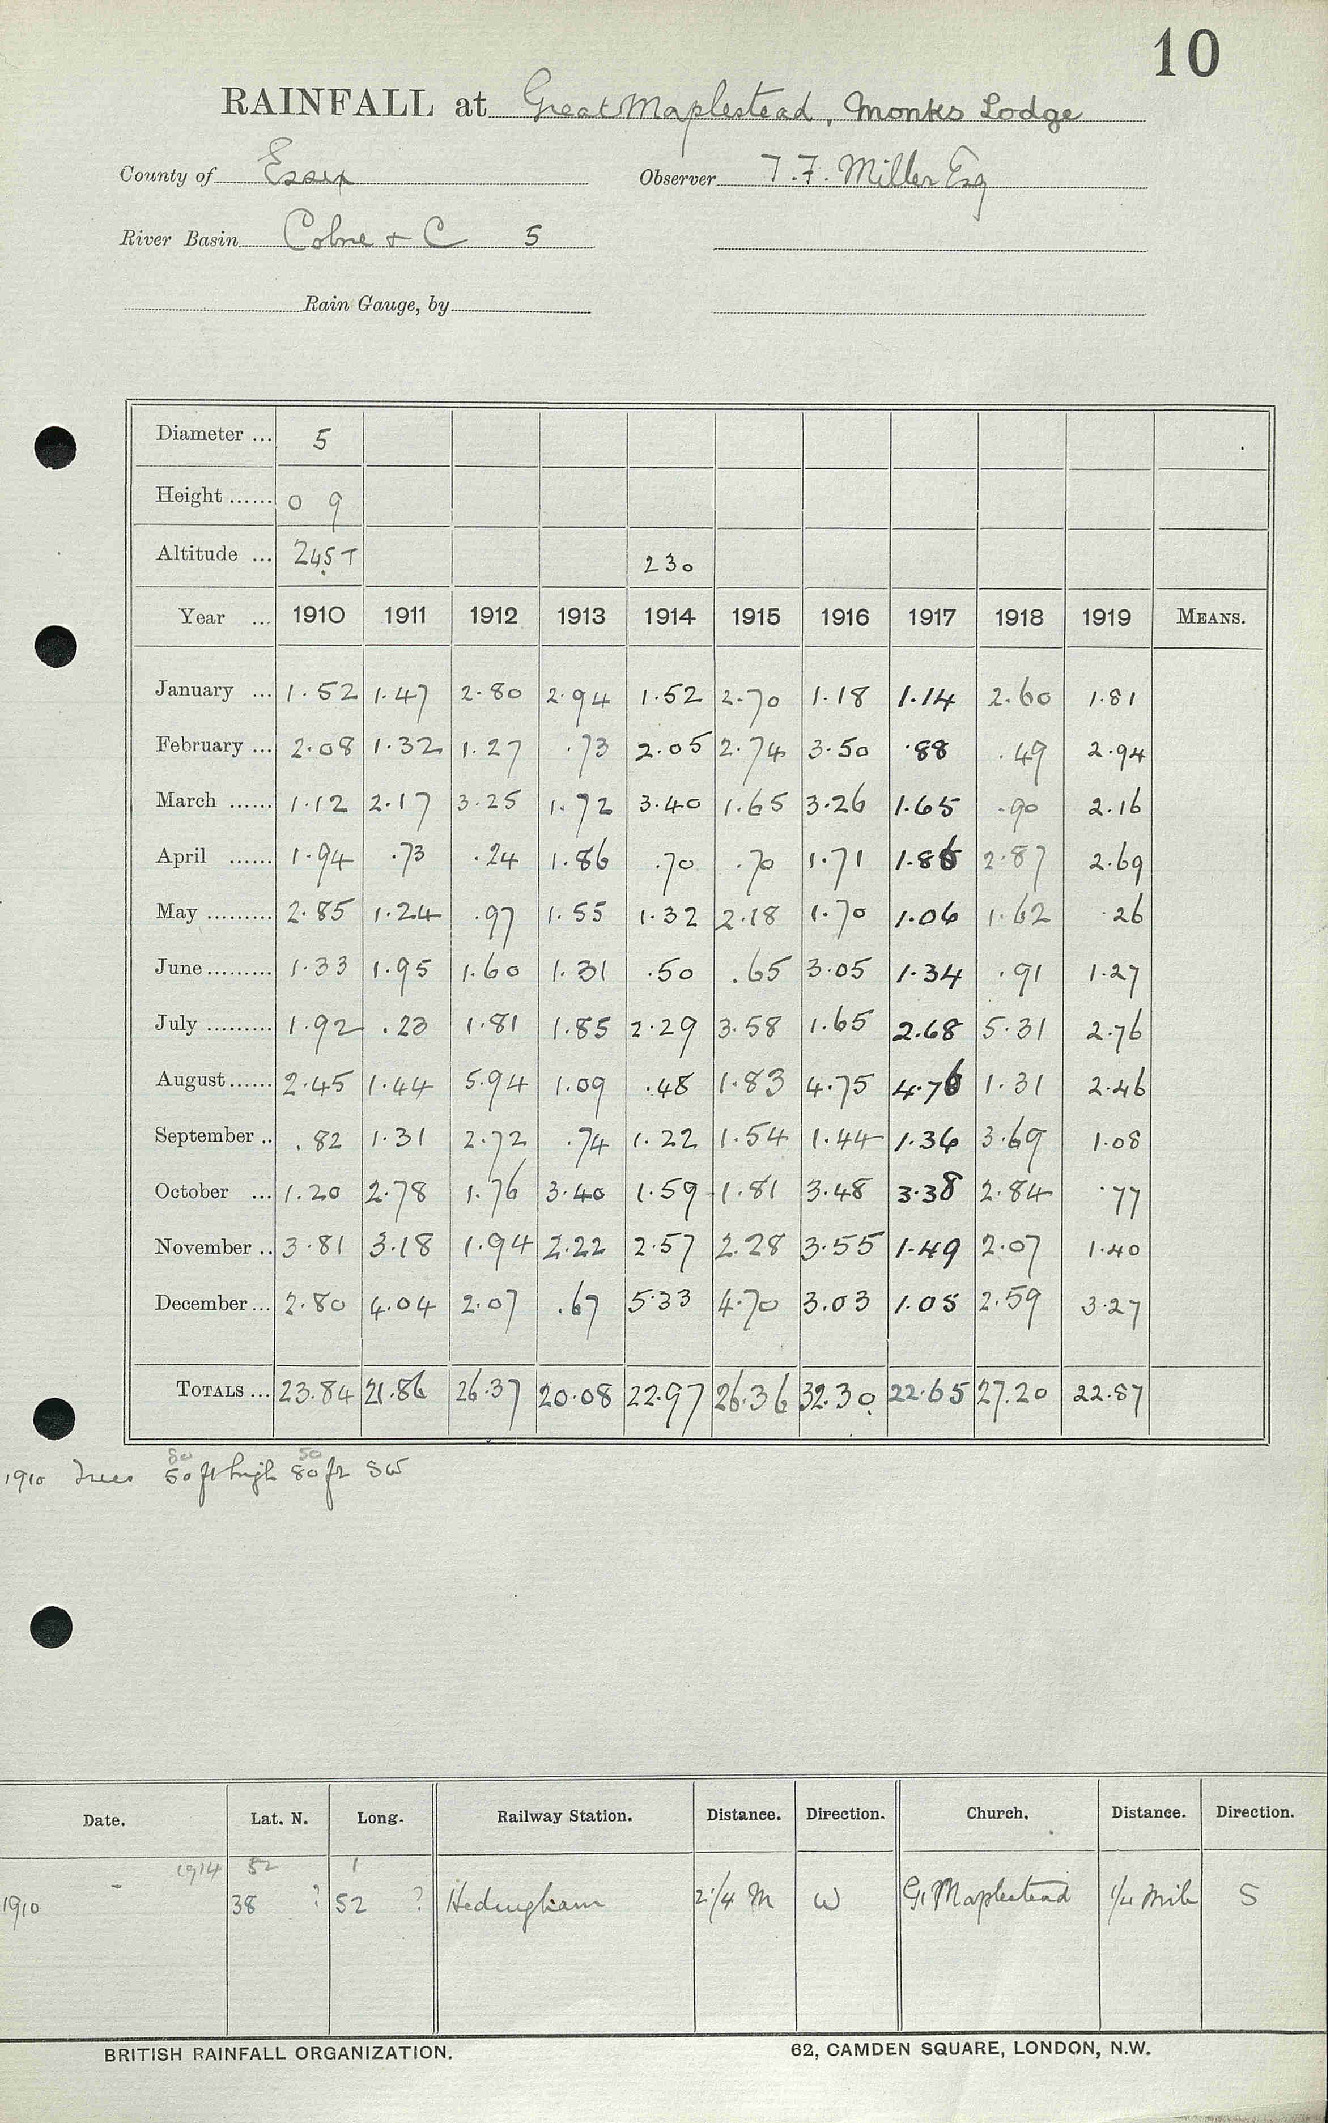 10
RAINFALL at Great Maplestead, Monks Lodge
County of Essex Observer T. F. Miller Esq
River Basin Colne + C 5
Rain Gauge, by
Diameter ... 5
Height ...... 0 9
Altitude ... 245 T 230
Year ... 1910 1911 1912 1913 1914 1915 1916 1917 1918 1919 MEANS.
January ... 1.52 1.47 2.80 2.94 1.52 2.70 1.18 1.14 2.60 1.81
February ... 2.08 1.32 1.27 .73 2.05 2.74 3.50 .88 .49 2.94
March ...... 1.12 2.17 3.25 1.72 3.40 1.65 3.26 1.65 .90 2.16
April ...... 1.94 .73 .24 1.86 .70 .70 1.71 1.86 2.87 2.69
May ......... 2.85 1.24 .97 1.55 1.32 2.18 1.70 1.06 1.62 .26
June ......... 1.33 1.95 1.60 1.31 .50 .65 3.05 1.34 .91 1.27
July ......... 1.92 .23 1.81 1.85 2.29 3.58 1.65 2.68 5.31 2.76
August ...... 2.45 1.44 5.94 1.09 .48 1.83 4.75 4.76 1.31 2.46
September .. .82 1.31 2.72 .74 1.22 1.54 1.44 1.36 3.69 1.08
October ... 1.20 2.78 1.76 3.40 1.59 1.81 3.48 3.38 2.84 .77
November .. 3.81 3.18 1.94 2.22 2.57 2.28 3.55 1.49 2.07 1.40
December ... 2.80 4.04 2.07 .67 5.33 4.70 3.03 1.05 2.59 3.27
TOTALS ... 23.84 21.86 26.37 20.08 22.97 26.36 32.30 22.65 27.20 22.87
80 50
1910 Trees 50 ft high 80 ft SW
Date. Lat. N. Long. Railway Station. Distance. Direction. Church. Distance. Direction.
1914 52 1
1910 38 ? 52 ? Hedingham 2 1/4 M W Gt Maplestead 1/4 Mile S
BRITISH RAINFALL ORGANIZATION. 62, CAMDEN SQUARE, LONDON, N.W.